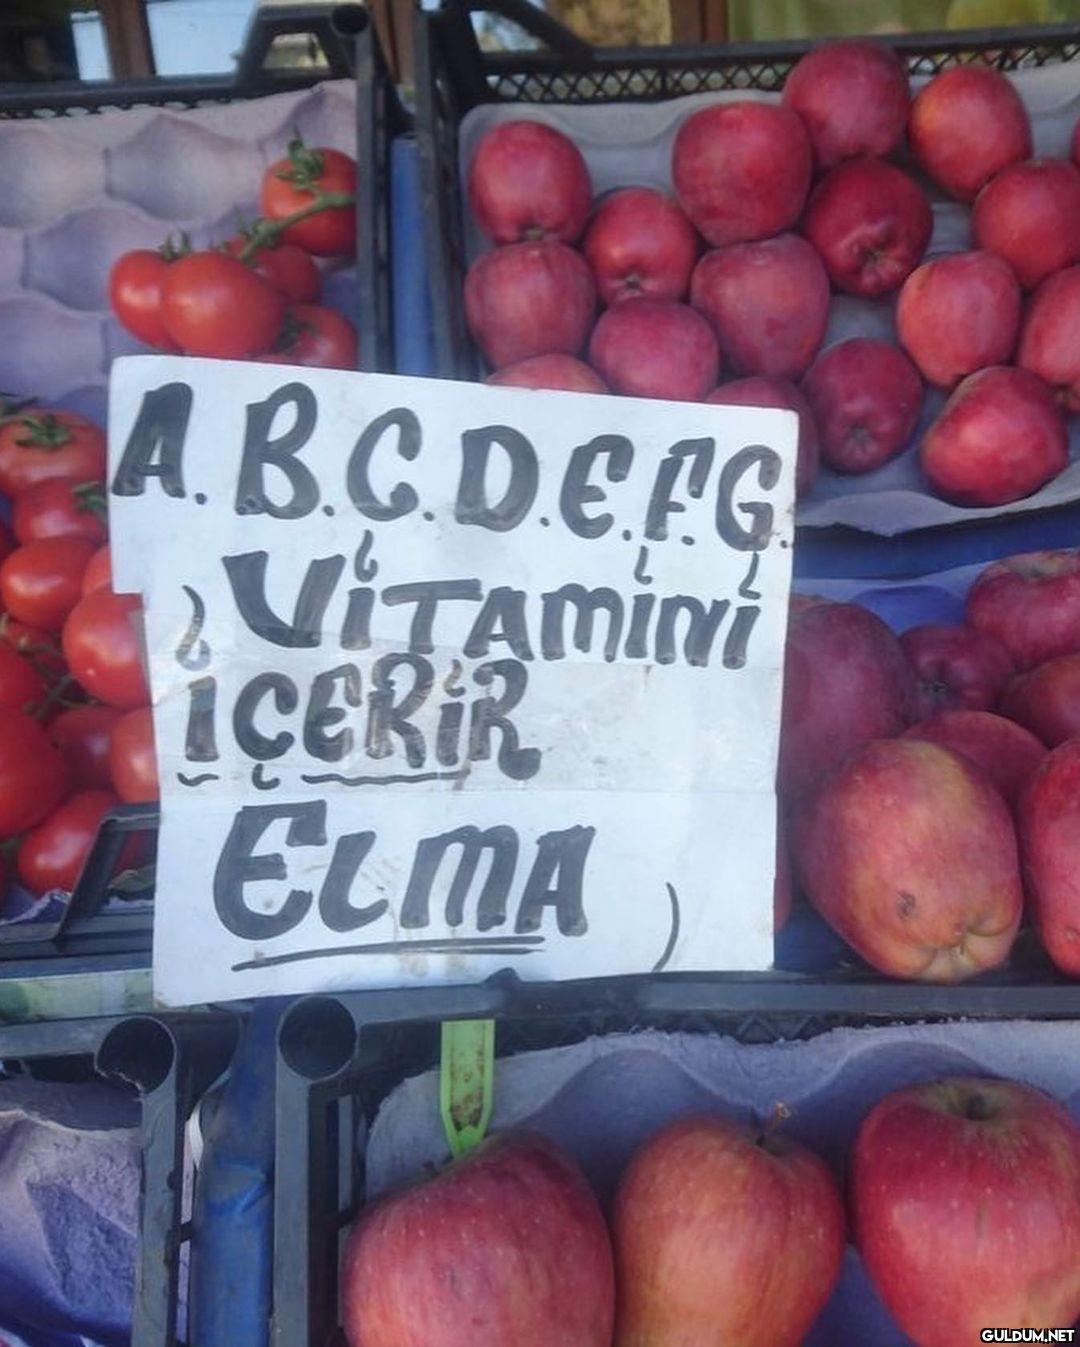 A.B.C.D.E.F.G.
VİTAMİNİ
İÇERİR
ELMA
GULDUM.NET